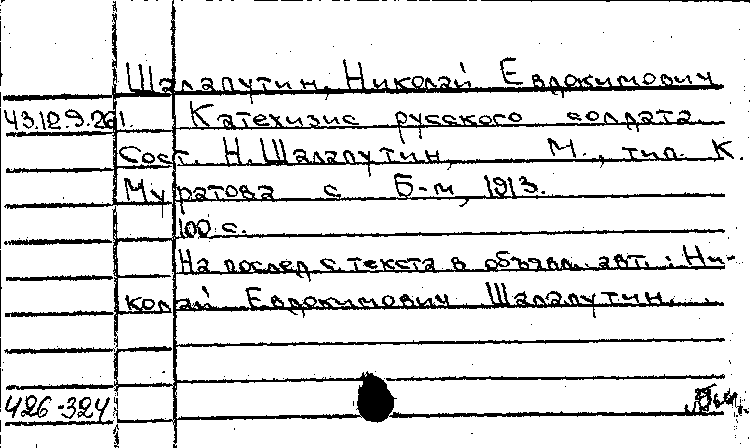 Шалапутин, Николай Евдокимович
43.12.9.261. Катехизис русского солдата
Сост. Н. Шалапутин, М., тип. К.
Муратова с Б-м, 1913.
100 с.
На послед с. текста в объявл. авт.: Ни-
колай Евдокимович Шалапутин.
426-324